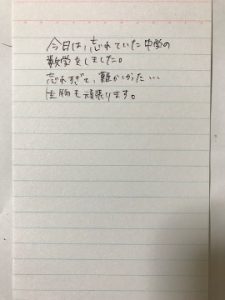 今日は、忘れていた中学の
数学をしました。
忘れすぎて、難しかった…
も頑張ります。